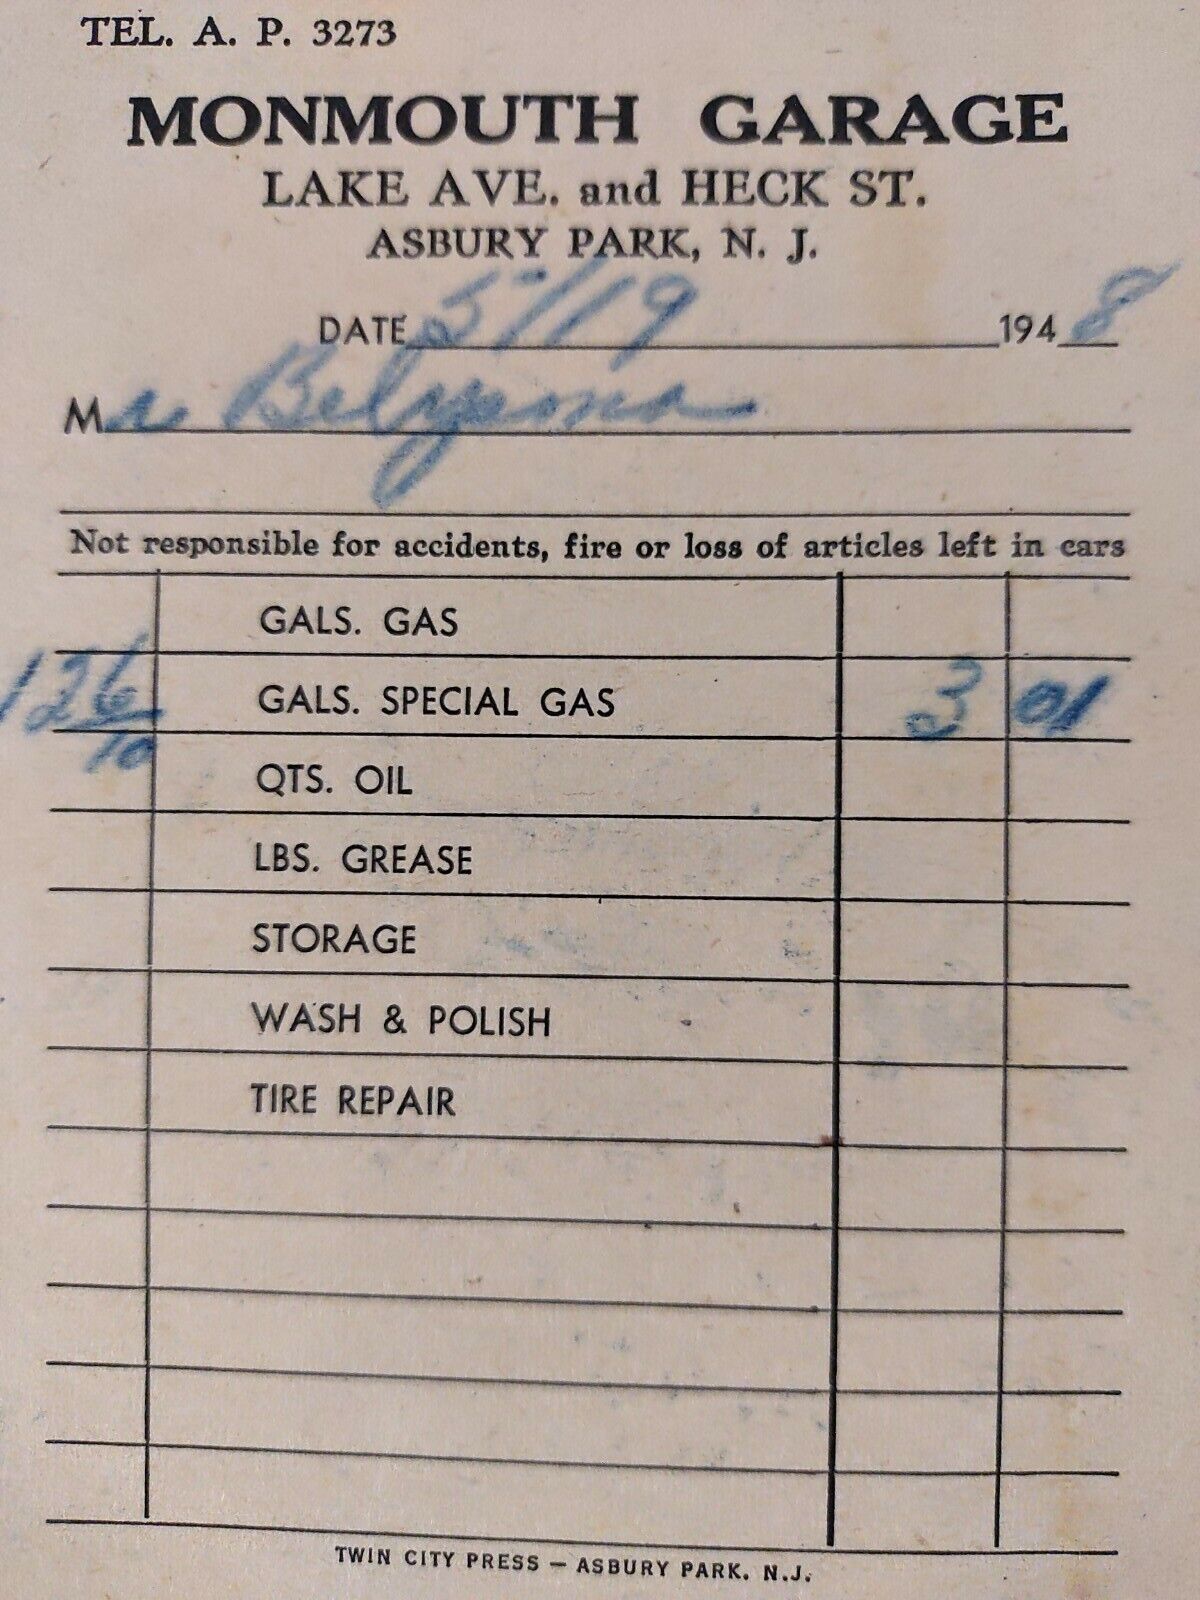 TEL. A. P. 3273
MONMOUTH GARAGE
LAKE AVE. and HECK ST.
ASBURY PARK, N. J.
DATE 5/19 1948
Mr
Not responsible for accidents, fire or loss of articles left in cars
GALS. GAS
12 6/10 GALS. SPECIAL GAS 3 01
QTS. OIL
LBS. GREASE
STORAGE
WASH & POLISH
TIRE REPAIR
TWIN CITY PRESS — ASBURY PARK. N.J.